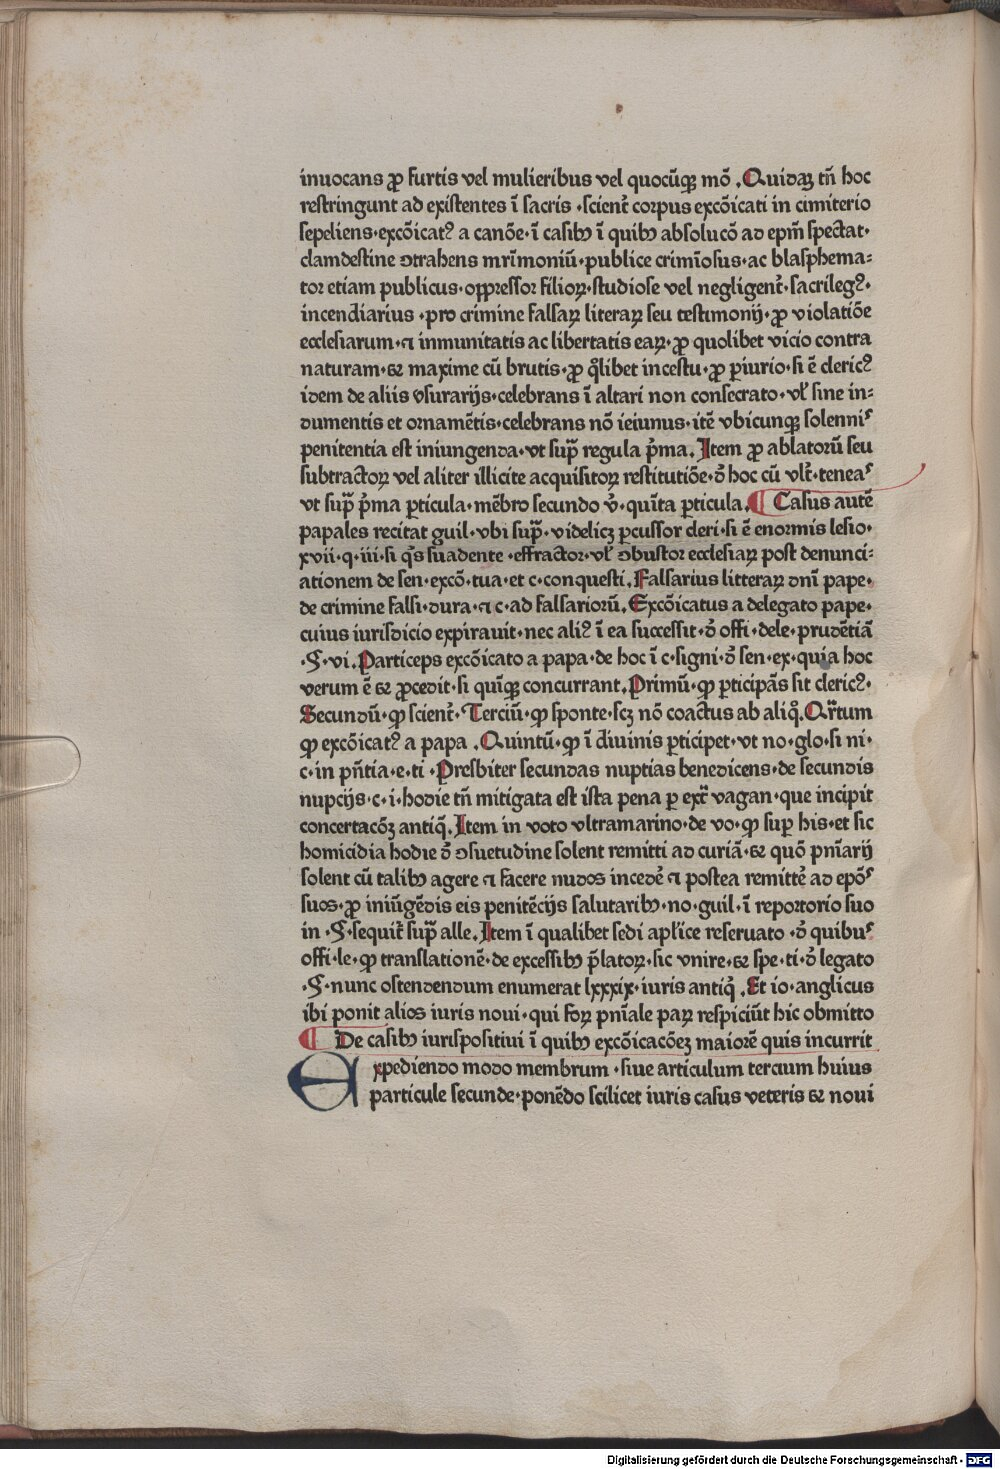 inuocans ꝓ furtis vel mulieribus vel quocūqꝫ mō .Quidaꝫ tñ hoc
restringunt ad existentes ī sacris ·scient̄ corpus excōicati in cimiterio
sepeliens·excōicatꝰ a canōe·ī casibꝰ ī quibꝰ absolucō ad ep̄m spectat·
clamdestine ↄtrahens mr̄imoniū·publice crimīosus·ac blasphema⸗
tor etiam publicus·oppressor filioꝝ·studiose vel negligent̄·sacrilegꝰ·
incendiarius ·pro crimine falsaꝝ literaꝝ seu testimonij·ꝓ violatiōe
ecclesiarum·⁊ inmunitatis ac libertatis eaꝝ·ꝓ quolibet vicio contra
naturam·⁊ maxime cū brutis·ꝓ q̄libet incestu·ꝓ ꝑiurio·si ē clericꝰ
idem de aliis vsurarijs·celebrans ī altari non consecrato·vl̓ sine in⸗
dumentis et ornamētis·celebrans nō ieiunus·itē vbicunqꝫ solennis
penitentia est iniungenda·vt sup̄ regula p̄ma.Item ꝓ ablatorū seu
subtractoꝝ vel aliter illicite acquisitoꝝ restitutiōe·ð hoc cū vlt̄·teneaᷣ
vt sup̄ p̄ma ꝑticula·mēbro secundo v̓·quīta ꝑticula.¶ Casus autē
papales recitat guil·vbi sup̄·videlicꝫ ꝑcussor cleri·si ē enormis lesio·
xvii·q·iii·si q̄s suadente ·effractor·vl̓ ↄbustor ecclesiaꝝ post denunci⸗
ationem de sen·excō·tua·et c·conquesti.Falsarius litteraꝝ dn̄i pape·
de crimine falsi·dura·⁊ c·ad falsariorū.Excōicatus a delegato pape·
cuius iurisdicio expirauit·nec aliꝰ ī ea successit·ð offi·dele·prudētiā
·§·vi.Particeps excōicato a papa·de hoc ī c·signi·ð sen·ex·quia hoc
verum ē ⁊ ꝓcedit·si quīqꝫ concurrant.Primū·ꝙ ꝑticipās sit clericꝰ·
Secundū·ꝙ scient̄·Terciū·ꝙ sponte·scꝫ nō coactus ab aliq̊.Qr̄tum
ꝙ excōicatꝰ a papa .Quintū·ꝙ ī diuinis ꝑticipet·vt no·glo·si ni·
c·in pn̄tia·e·ti ·Presbiter secundas nuptias benedicens·de secundis
nupcijs·c·i·hodie tñ mitigata est ista pena ꝑ ext̄ vagan·que incipit
concertacōꝫ antiq̄.Item in voto vltramarino·de vo·ꝙ suꝑ his·et sic
homicidia hodie ð ↄsuetudine solent remitti ad curiā·⁊ quō pn̄iarij
solent cū talibꝰ agere ⁊ facere nudos incedē ⁊ postea remittē ad epōs
suos·ꝓ iniūgēdis eis penitēcijs salutaribꝰ·no·guil·ī reportorio suo
in ·§·sequit̄ sup̄ alle.Item ī qualibet sedi apl̓ice reseruato ·ð quibus
offi·le·ꝙ translationē·de excessibꝰ p̄latoꝝ·sic vnire·⁊ spe·ti·ð legato
·§·nunc ostendendum enumerat lxxxix·iuris antiq̓ .Et io·anglicus
ibi ponit alios iuris noui·qui foꝝ pn̄iale paꝝ respiciūt hic obmitto
¶ De casibꝰ iurispositiui ī quibꝰ excōicacōeꝫ maiorē quis incurrit
Expediendo modo membrum ·siue articulum tercium huius
particule secunde·ponēdo scilicet iuris casus veteris ⁊ noui
Digitalisierung gefördert durch die Deutsche Forschungsgemeinschaft - DFG